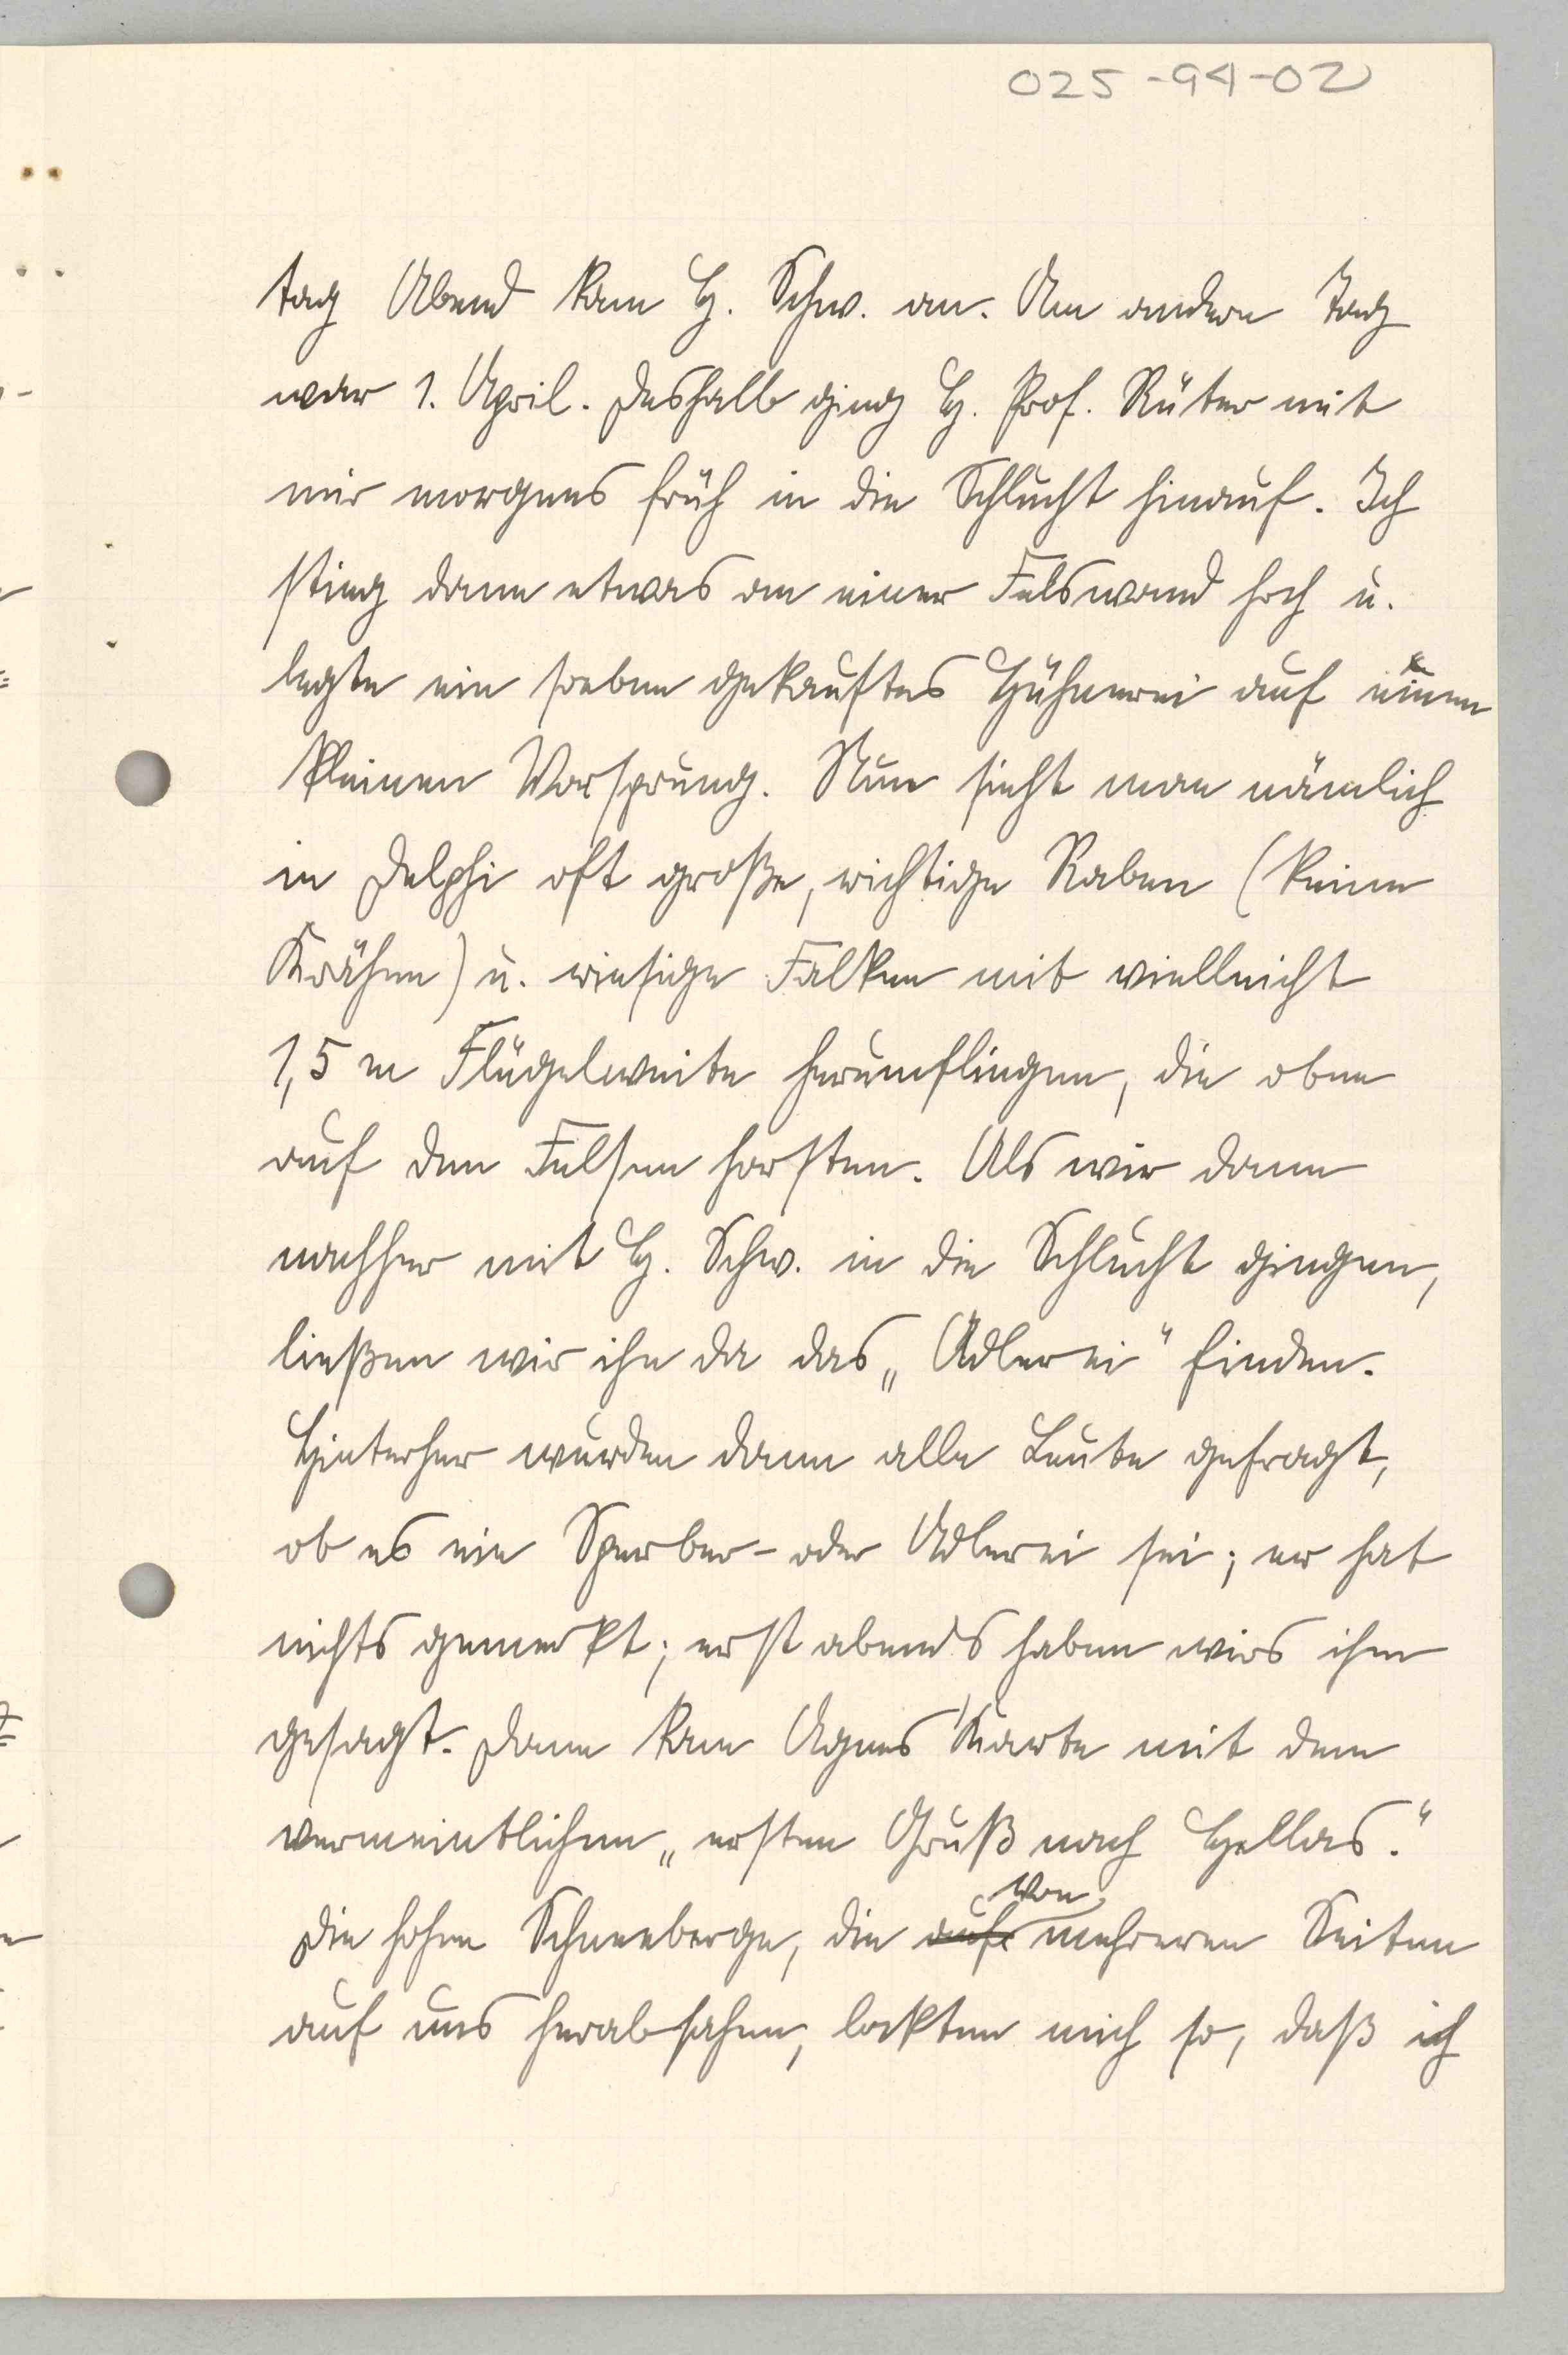 025-94-02
tag Abend kam H. Schw. an. Am andern Tag
war 1. April. Deshalb ging H. Prof. Rüter mit
mir morgens früh in die Schlucht hinauf. Ich
stieg dann etwas an einer Felswand hoch u.
legte ein soeben gekauftes Hühnerei auf einen
kleinen Vorsprung. Nun sieht man nämlich
in Delphi oft große, richtige Raben (keine
Krähen) u. riesige Falken mit vielleicht
1,5 m Flügelweite herumfliegen, die oben
auf den Felsen horsten. Als wir dann
nachher mit H. Schw. in die Schlucht gingen,
ließen wir ihn da das „Adlerei" finden.
Hinterher wurden dann alle Leute gefragt,
ob es ein Sperber- oder Adlerei sei; er hat
nichts gemerkt; erst abends haben wirs ihm
gesagt. Dann kam Agnes Karte mit dem
vermeintlichen „ersten Gruß nach Hellas."
Die hohen Schneeberge, die auf von mehreren Seiten
auf uns herabsahen, lockten mich so, daß ich